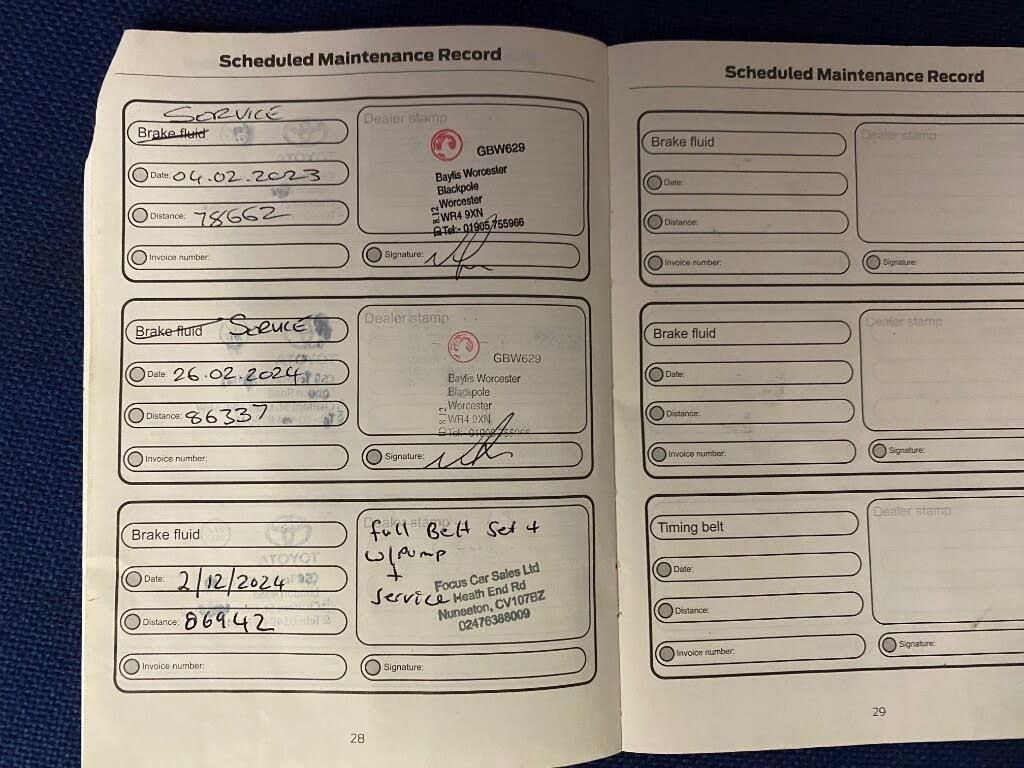 Scheduled Maintenance Record
SERVICE
Brake fluid
Date: 04.02.2023
Distance: 78662
Invoice number:
Dealer stamp
GBW629
Baylis Worcester
Blackpole
Worcester
WR4 9XN
Tel:- 01905 755966
Signature:
Brake fluid SERVICE
Date: 26.02.2024
Distance: 86337
Invoice number:
Dealer stamp
GBW629
Baylis Worcester
Blackpole
Worcester
WR4 9XN
Tel:- 01905 755966
Signature:
Brake fluid
Date: 2/12/2024
Distance: 86942
Invoice number:
Dealer stamp
full Belt Set +
w/pump
+
service
Focus Car Sales Ltd
Heath End Rd
Nuneaton, CV107BZ
02476388009
Signature:
28
Scheduled Maintenance Record
Brake fluid
Date:
Distance:
Invoice number:
Dealer stamp
Signature:
Brake fluid
Date:
Distance:
Invoice number:
Dealer stamp
Signature:
Timing belt
Date:
Distance:
Invoice number:
Dealer stamp
Signature:
29